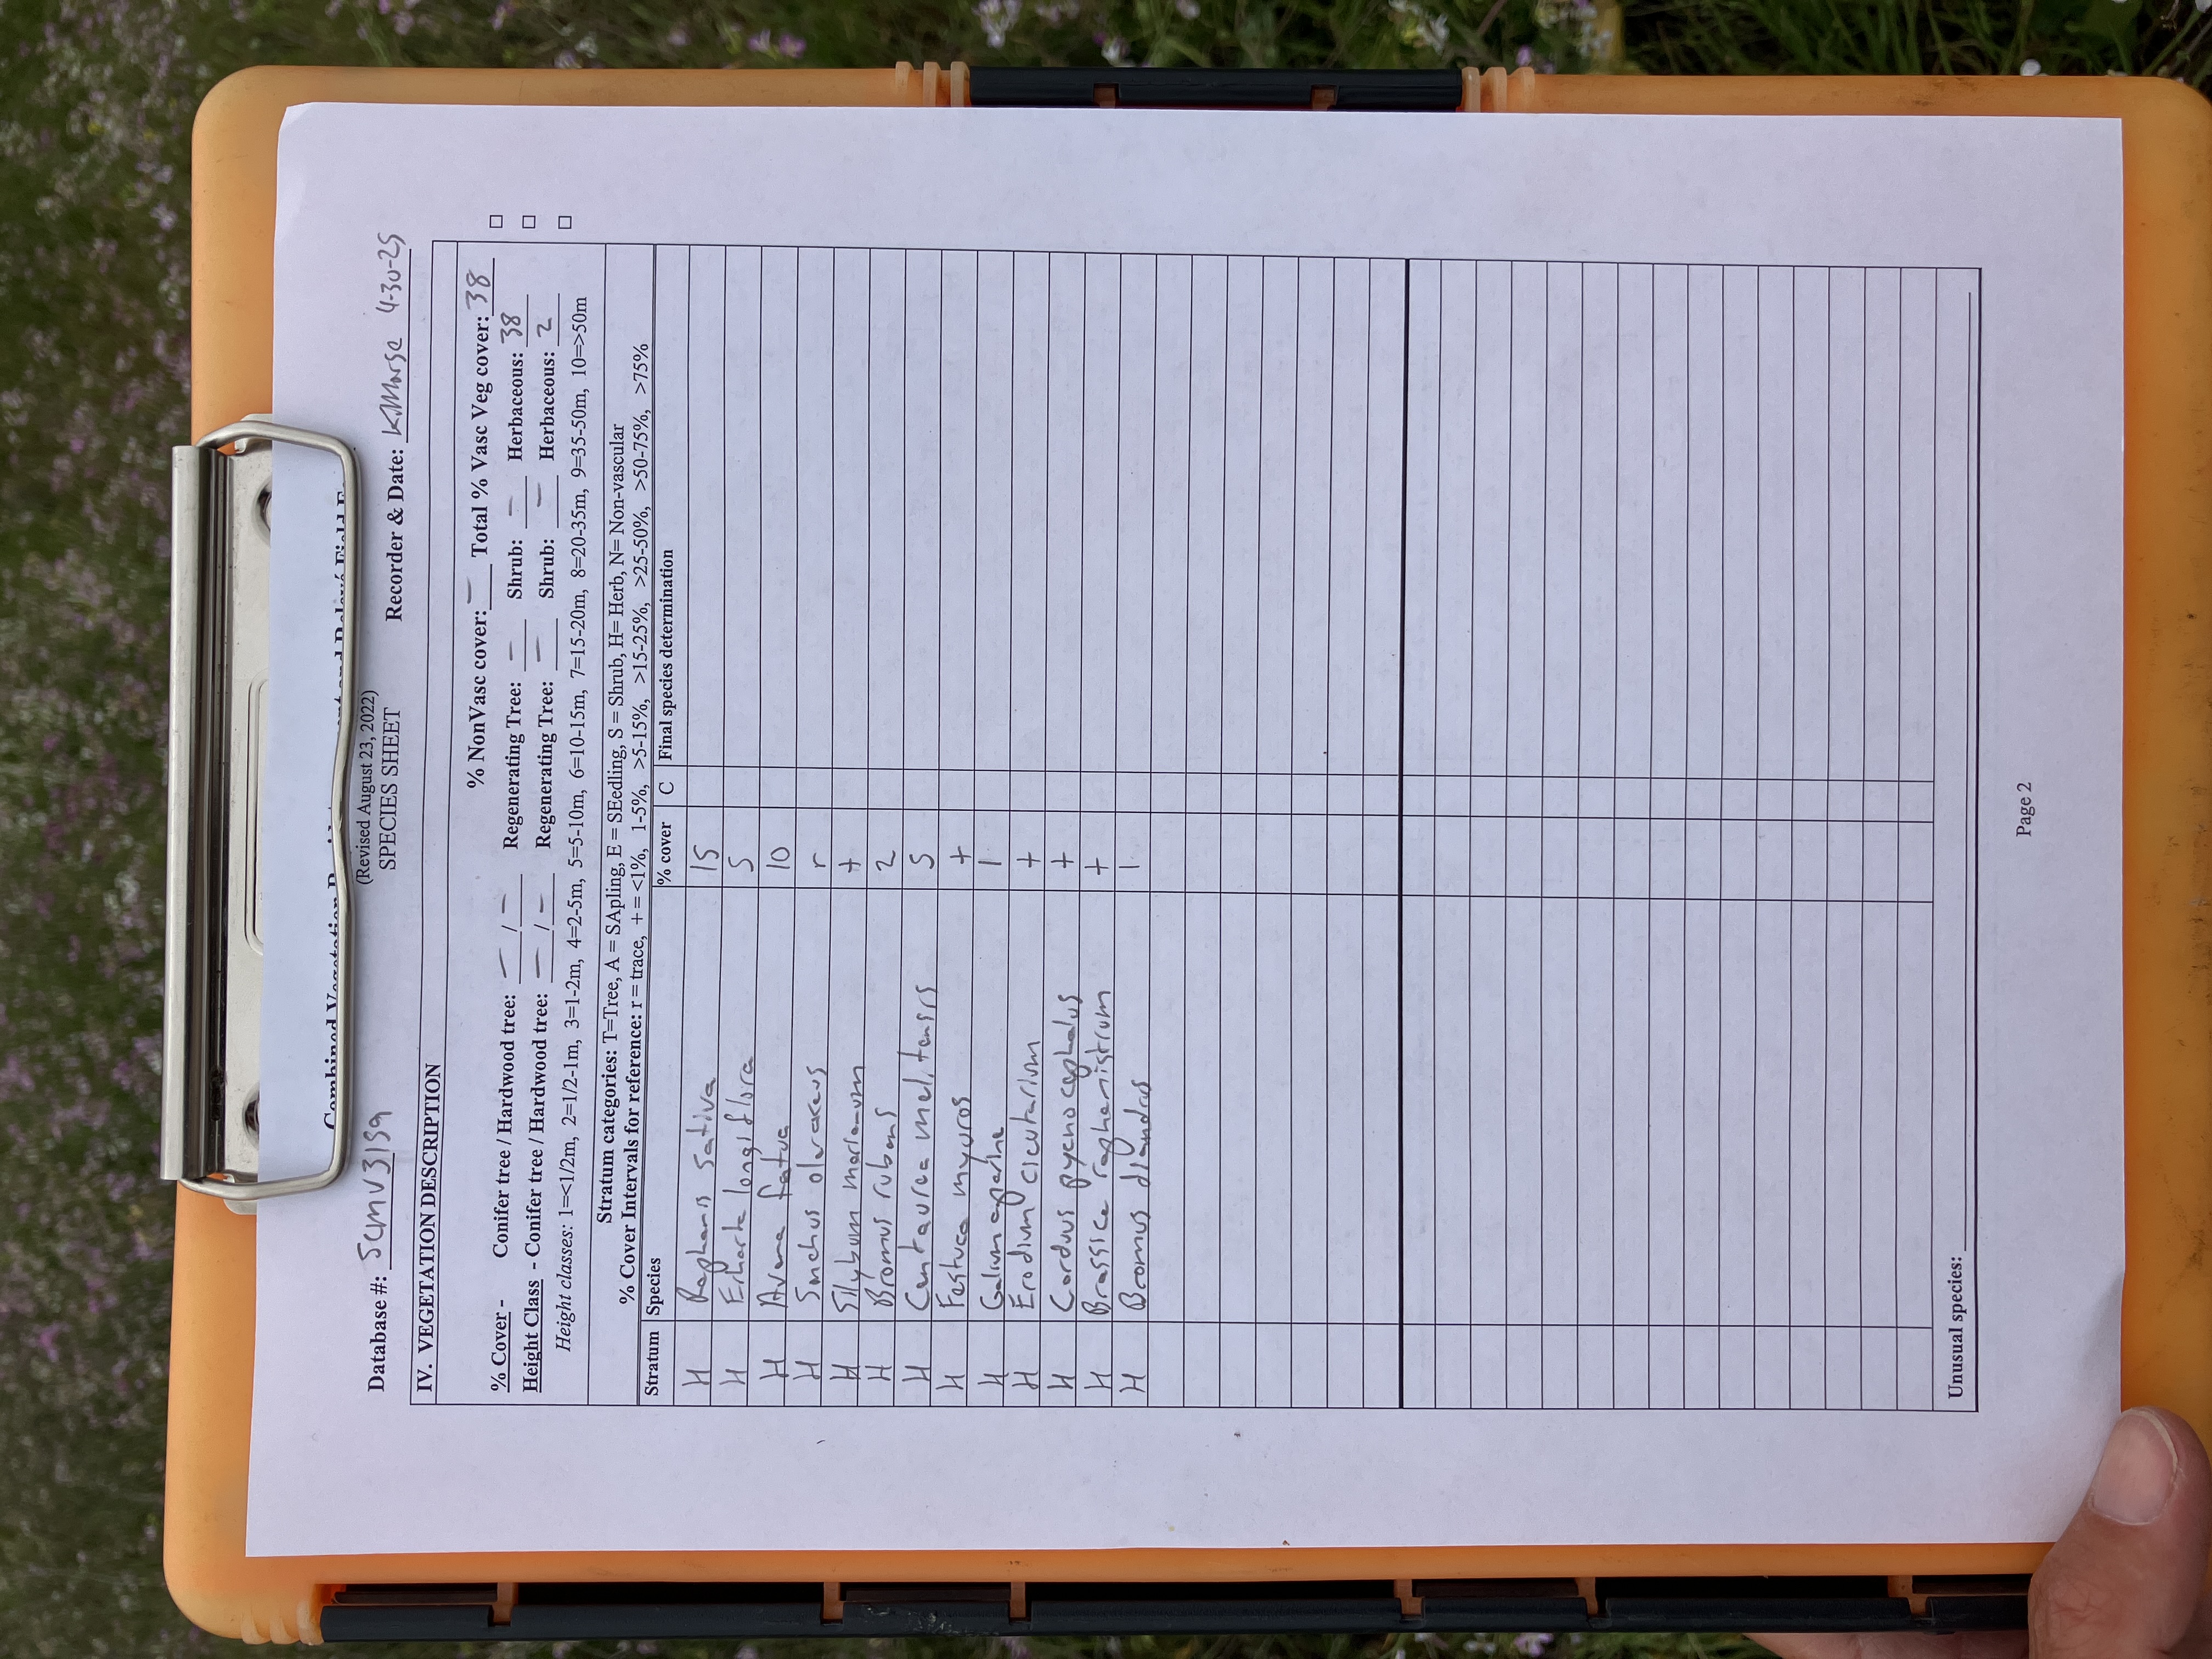 (Revised August 23, 2022)
SPECIES SHEET
Database #: SCMV3159 Recorder & Date: K.Morse 4-30-25
IV. VEGETATION DESCRIPTION
% NonVasc cover: — Total % Vasc Veg cover: 38
% Cover - Conifer tree / Hardwood tree: — / — Regenerating Tree: — Shrub: — Herbaceous: 38 □
Height Class - Conifer tree / Hardwood tree: — / — Regenerating Tree: — Shrub: — Herbaceous: 2 □
Height classes: 1=<1/2m, 2=1/2-1m, 3=1-2m, 4=2-5m, 5=5-10m, 6=10-15m, 7=15-20m, 8=20-35m, 9=35-50m, 10=>50m □
Stratum categories: T=Tree, A = SApling, E = SEedling, S = Shrub, H= Herb, N= Non-vascular
% Cover Intervals for reference: r = trace, + = <1%, 1-5%, >5-15%, >15-25%, >25-50%, >50-75%, >75%
Stratum Species % cover C Final species determination
H Raphanis sativa 15
H Erharta longiflora 5
H Avena fatua 10
H Sonchus oleraceus r
H Silybum marianum +
H Bromus rubens 2
H Centaurea melitensis 5
H Festuca myuros +
H Galium aparine 1
H Erodium cicutarium +
H Carduus pycnocephalus +
H Brassica raphanistrum +
H Bromus diandrus 1
Unusual species:
Page 2